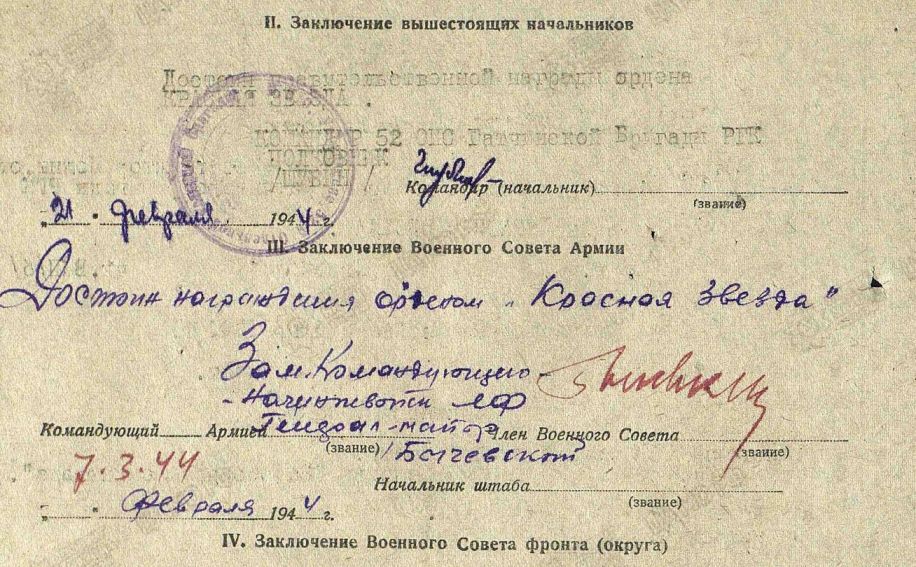 II. Заключение вышестоящих начальников
Достоин правительственной награды ордена
КРАСНАЯ ЗВЕЗДА .
КОМАНДИР 52 ОПС Гатчинской Бригады РГК
ПОЛКОВНИК
/ШУБИН /
Командир (начальник)
(звание)
„ 21 " февраля 1944 г.
III. Заключение Военного Совета Армии
Достоин награждения орденом „Красная Звезда"
Зам. Командующего-
-Начинжвойск ЛФ
Генерал-майор
Командующий Армией Член Военного Совета
(звание) /Бычевский (звание)
7.3.44
Начальник штаба
(звание)
„ " февраля 1944 г.
IV. Заключение Военного Совета фронта (округа)